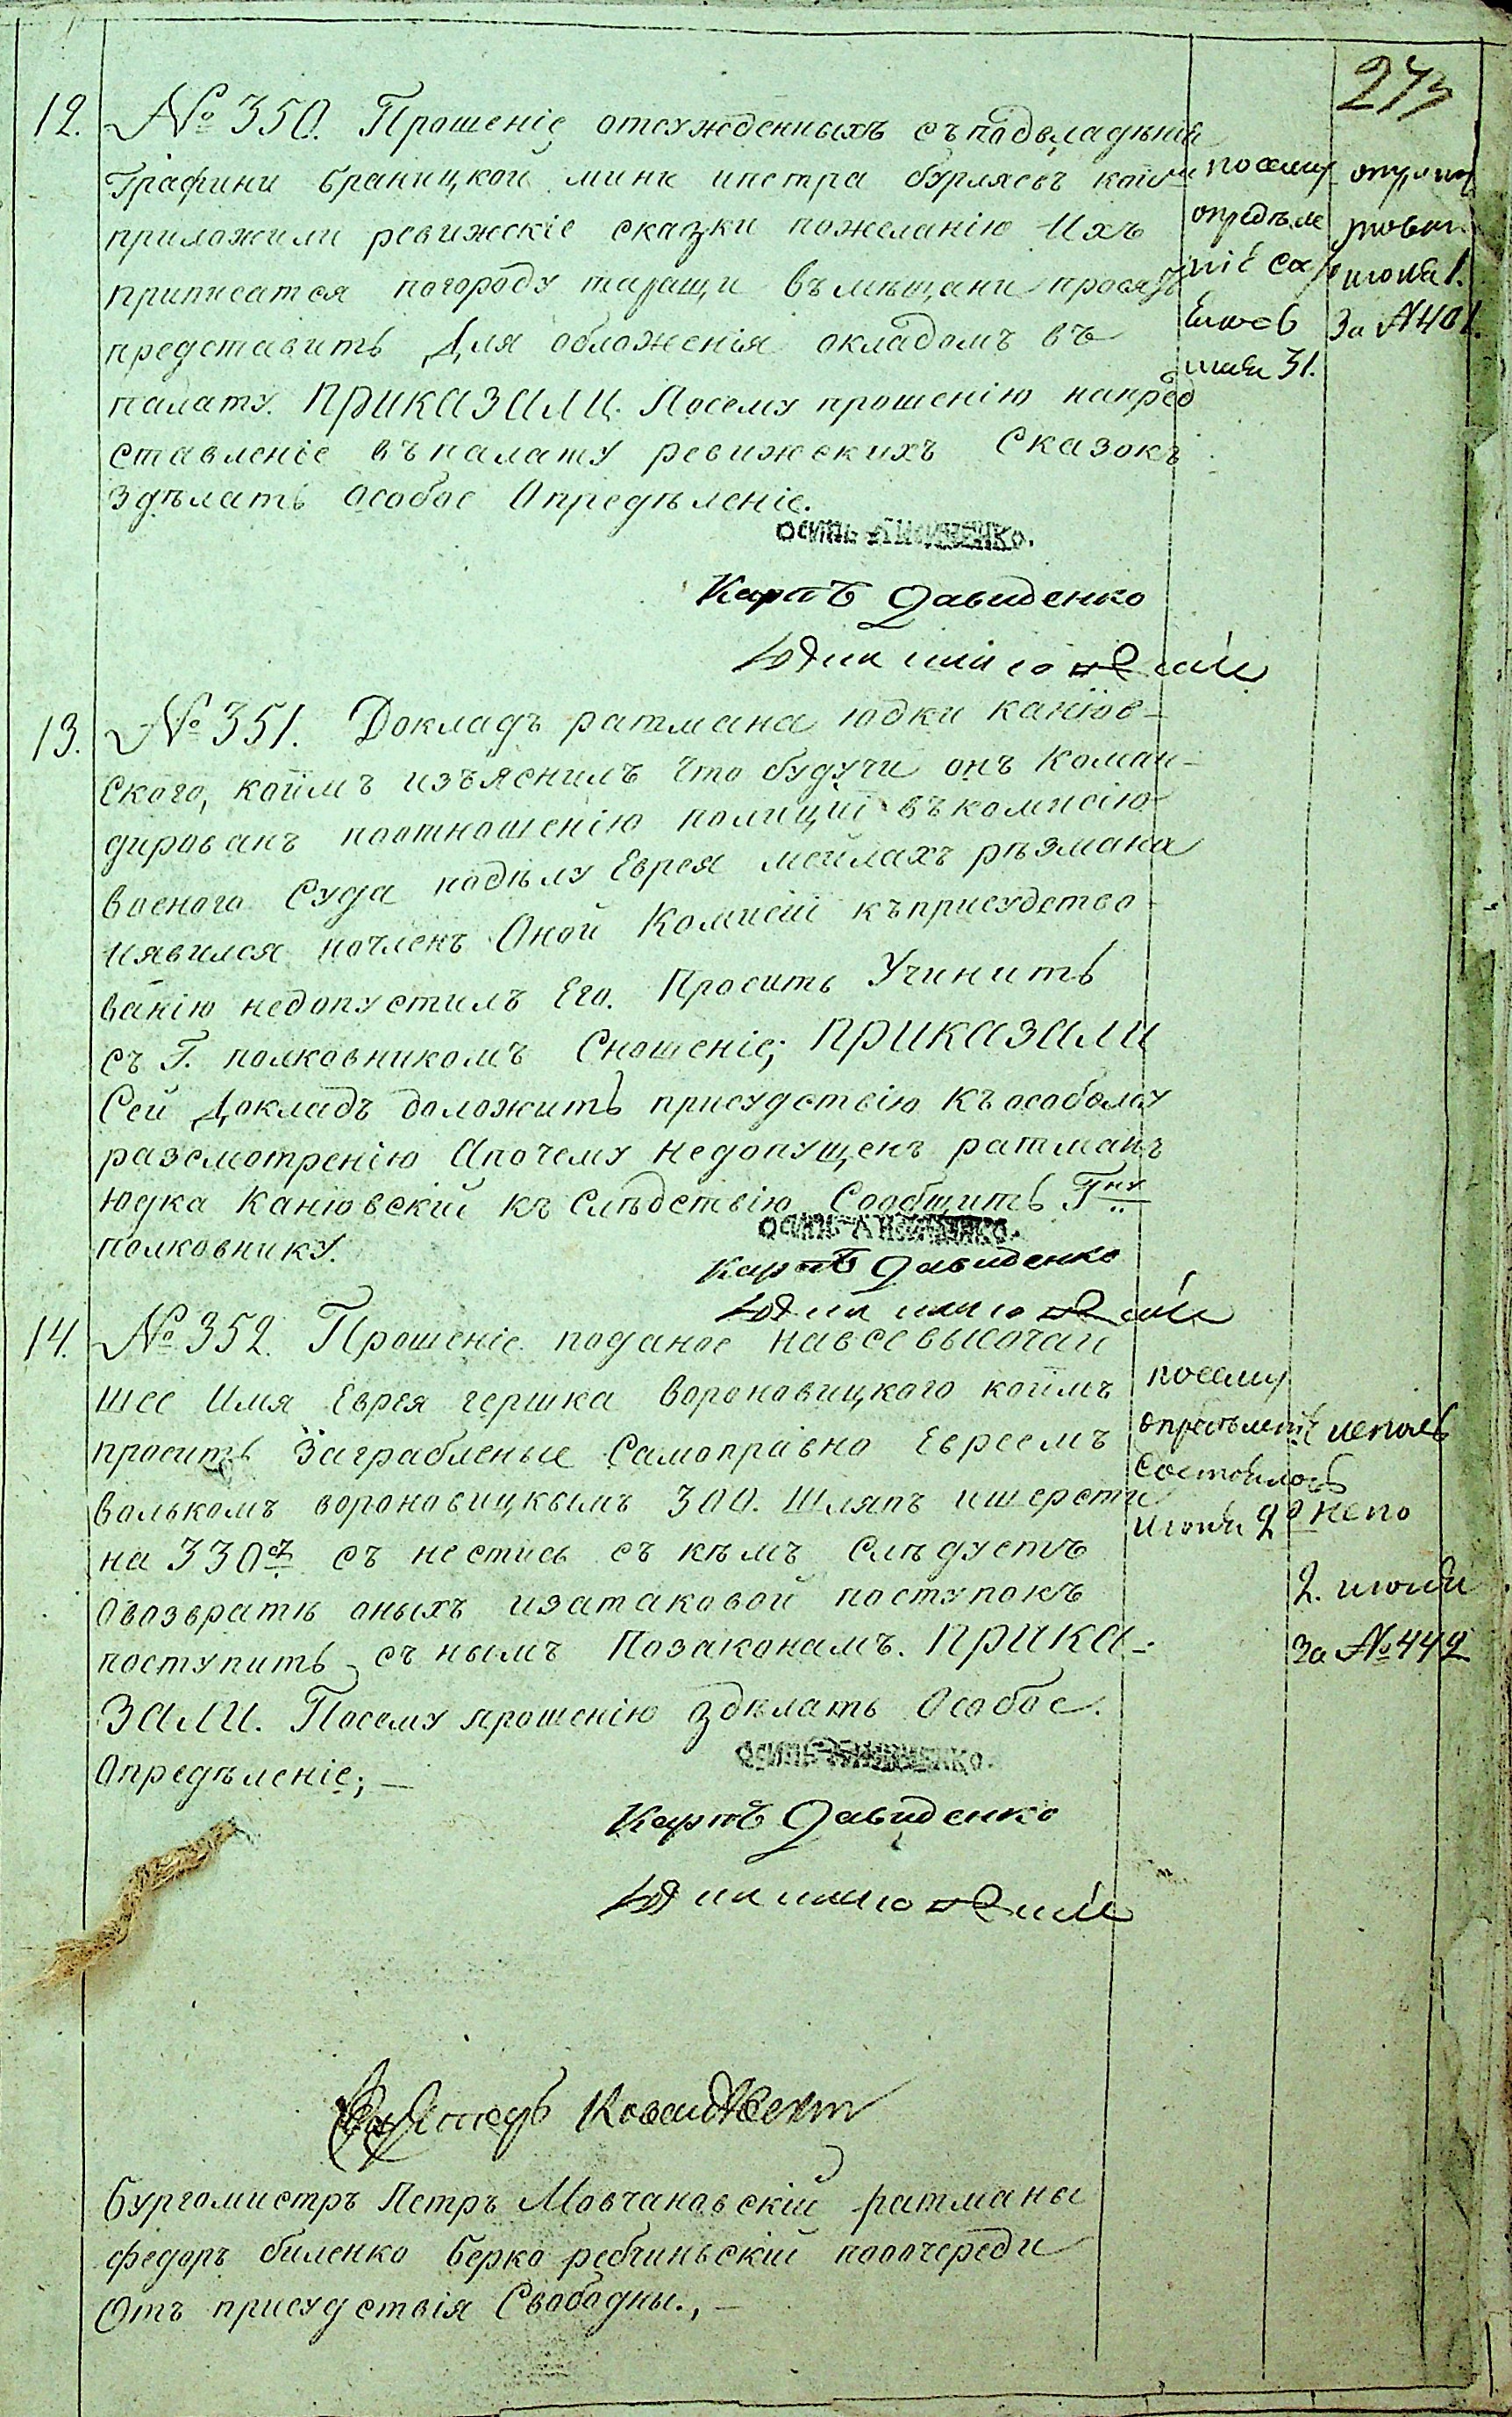 273
12. № 350. Прошеніе отсужденныхъ съ подвладѣнія
Графини браницкой минк инстра бурлясвъ коими
приложили ревижскіе сказки пожеланію Ихъ
приписатся погороду таращи въмѣщани просятъ
представить Для обложенія окладомъ въ
палату. ПРИКАЗАЛИ. Посему прошенію напред
ставленіе въпалату ревижскихъ Сказокъ
Здѣлать Особое Опредѣленіе.
посему
опредѣле
ніе со
маия 31.
июня 1.
За №401.
Осипъ
Карпъ Давиденко
13. № 351. Докладъ ратмана юдки каніов-
Ского, коимъ изъяснилъ Что будучи онъ Коман-
дированъ поотношенію полиціи въкомисію
военого Суда подѣлу Еврея мейлахъ рѣзмана
иявился ночленъ Оной Комисіи къприсудство-
ванію недопустилъ Его. Проситъ Учинить
съ Г. полковникомъ Сношеніе; ПРИКАЗАЛИ
Сей Докладъ доложить присудствію Къособому
разсмотренію Ипочему недопущенъ ратманъ
Юдка Каніовскій къ Слѣдствію Сообщить Гну
полковнику.
Осипъ
Карпъ Давиденко
14. № 352. Прошеніе поданое навсевысочай
шее Имя Еврея гершка вороновицкого коимъ
проситъ Заграбленые Самоправно Евреемъ
волькомъ вороновицкымъ 300. Шляпъ ишерсти
на 330 съ нестись съ кѣмъ слѣдуетъ
Овозвратѣ оныхъ изатаковой поступокъ
поступить съ нымъ Позаконамъ. ПРИКА-
ЗАЛИ. Посему прошенію здѣлать Особое
Опредѣленіе; —
посему
опредѣленіе
Состоялось
июня 2
исполнено
2. июня
За №442
Осипъ
Карпъ Давиденко
Бургомистръ Петръ Мовчановскій ратманы
федоръ биленко берко ребчиньскій поочереди
Отъ присудствія Свободны., —